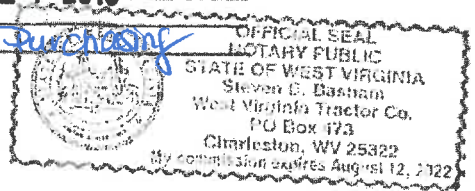 Purchasing
OFFICIAL SEAL
NOTARY PUBLIC
STATE OF WEST VIRGINIA
Steven C. Basham
West Virginia Tractor Co.
PO Box 473
Charleston, WV 25322
My commission expires August 12, 2022